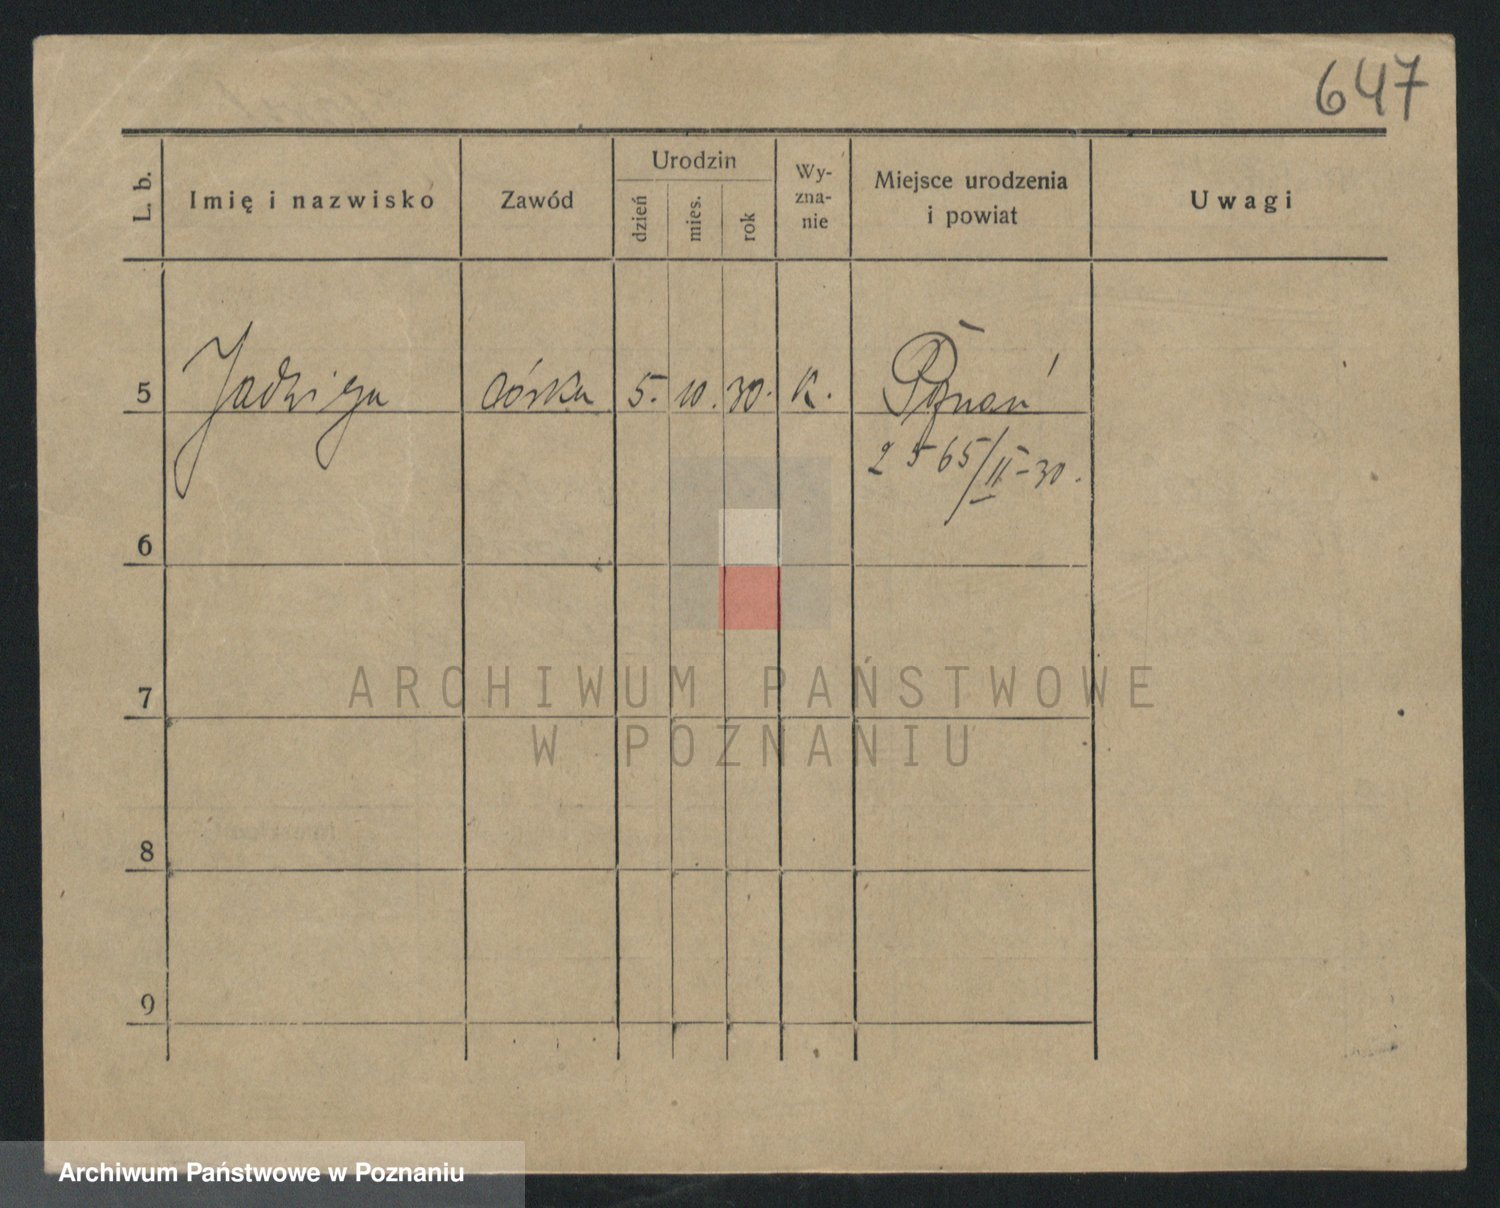 647
L. b.
Imię i nazwisko
Zawód
Urodzin
dzień
mies.
rok
Wy-
zna-
nie
Miejsce urodzenia
i powiat
Uwagi
5 Jadwiga córka 5. 10. 30. K. Poznań
2565/II-30.
6
7
8
9
ARCHIWUM PAŃSTWOWE
W POZNANIU
Archiwum Państwowe w Poznaniu